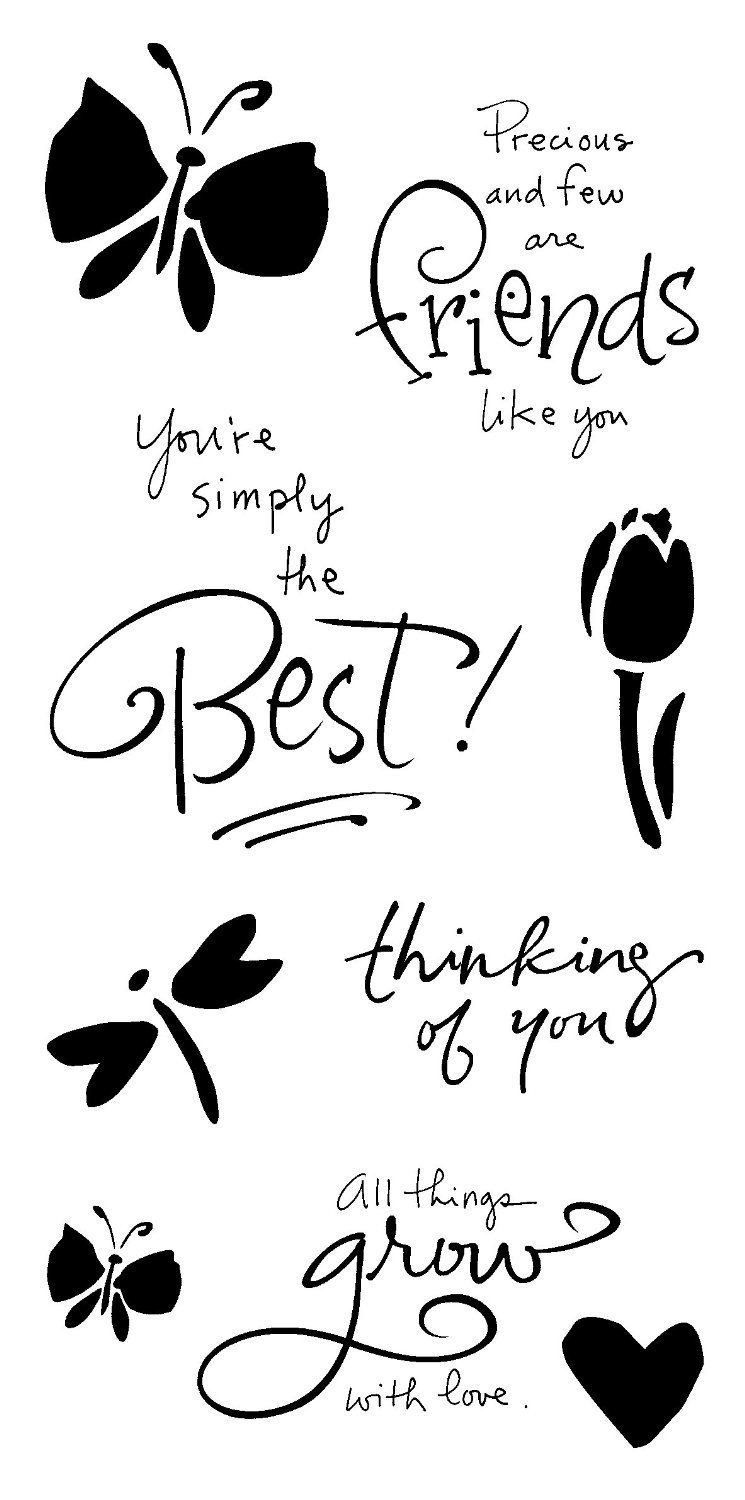 Precious
and few
are
friends
like you
You're
simply
the
Best!
thinking
of you
All things
grow
with love.